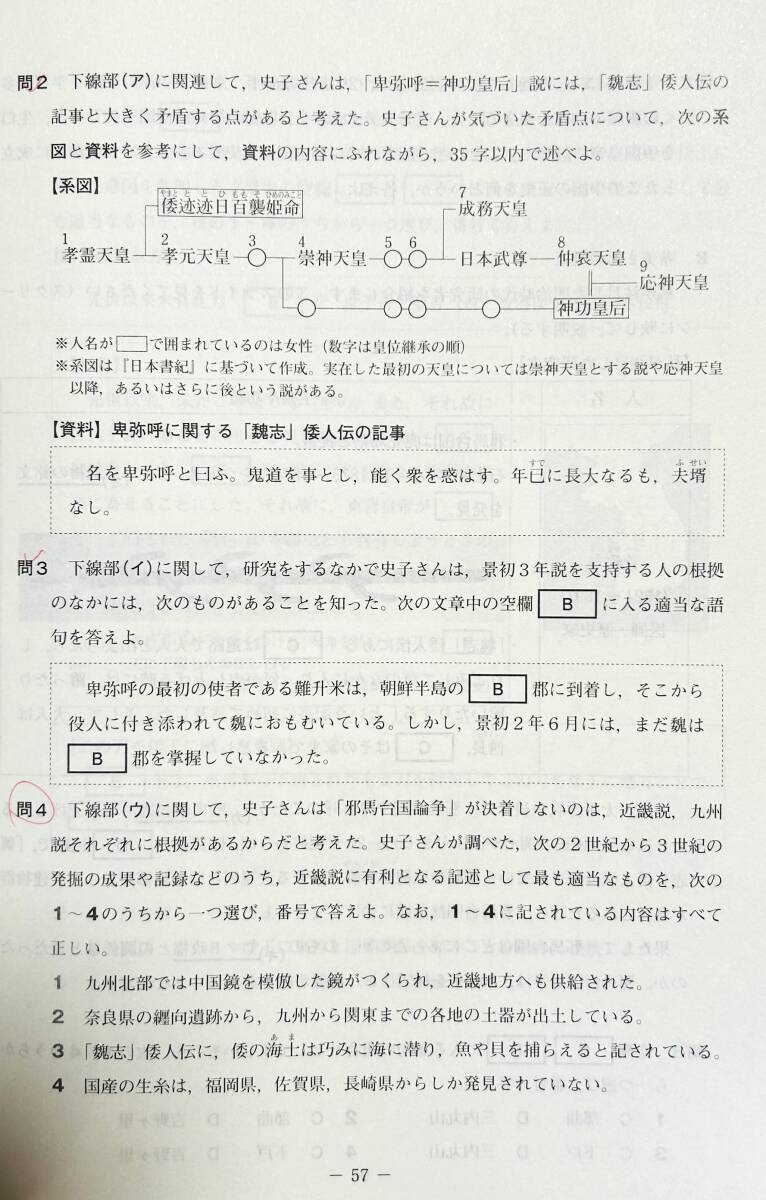 問2 下線部(ア)に関連して，史子さんは，「卑弥呼＝神功皇后」説には，「魏志」倭人伝の
記事と大きく矛盾する点があると考えた。史子さんが気づいた矛盾点について，次の系
図と資料を参考にして，資料の内容にふれながら，35字以内で述べよ。
【系図】
やまと と と ひ もも そ ひめのみこと
倭迹迹日百襲姫命
7
成務天皇
1 2 3 4 5 6 8
孝霊天皇 孝元天皇 ○ 崇神天皇 ○○ 日本武尊 仲哀天皇
9
応神天皇
○ ○ ○ ○ 神功皇后
※人名が□で囲まれているのは女性（数字は皇位継承の順）
※系図は『日本書紀』に基づいて作成。実在した最初の天皇については崇神天皇とする説や応神天皇
以降，あるいはさらに後という説がある。
【資料】卑弥呼に関する「魏志」倭人伝の記事
すで ふ せい
名を卑弥呼と曰ふ。鬼道を事とし，能く衆を惑はす。年已に長大なるも，夫壻
なし。
問3 下線部(イ)に関して，研究をするなかで史子さんは，景初3年説を支持する人の根拠
のなかには，次のものがあることを知った。次の文章中の空欄 B に入る適当な語
句を答えよ。
卑弥呼の最初の使者である難升米は，朝鮮半島の B 郡に到着し，そこから
役人に付き添われて魏におもむいている。しかし，景初2年6月には，まだ魏は
B 郡を掌握していなかった。
問4 下線部(ウ)に関して，史子さんは「邪馬台国論争」が決着しないのは，近畿説，九州
説それぞれに根拠があるからだと考えた。史子さんが調べた，次の2世紀から3世紀の
発掘の成果や記録などのうち，近畿説に有利となる記述として最も適当なものを，次の
1～4のうちから一つ選び，番号で答えよ。なお，1～4に記されている内容はすべて
正しい。
1 九州北部では中国鏡を模倣した鏡がつくられ，近畿地方へも供給された。
2 奈良県の纏向遺跡から，九州から関東までの各地の土器が出土している。
あ ま
3 「魏志」倭人伝に，倭の海士は巧みに海に潜り，魚や貝を捕らえると記されている。
4 国産の生糸は，福岡県，佐賀県，長崎県からしか発見されていない。
― 57 ―